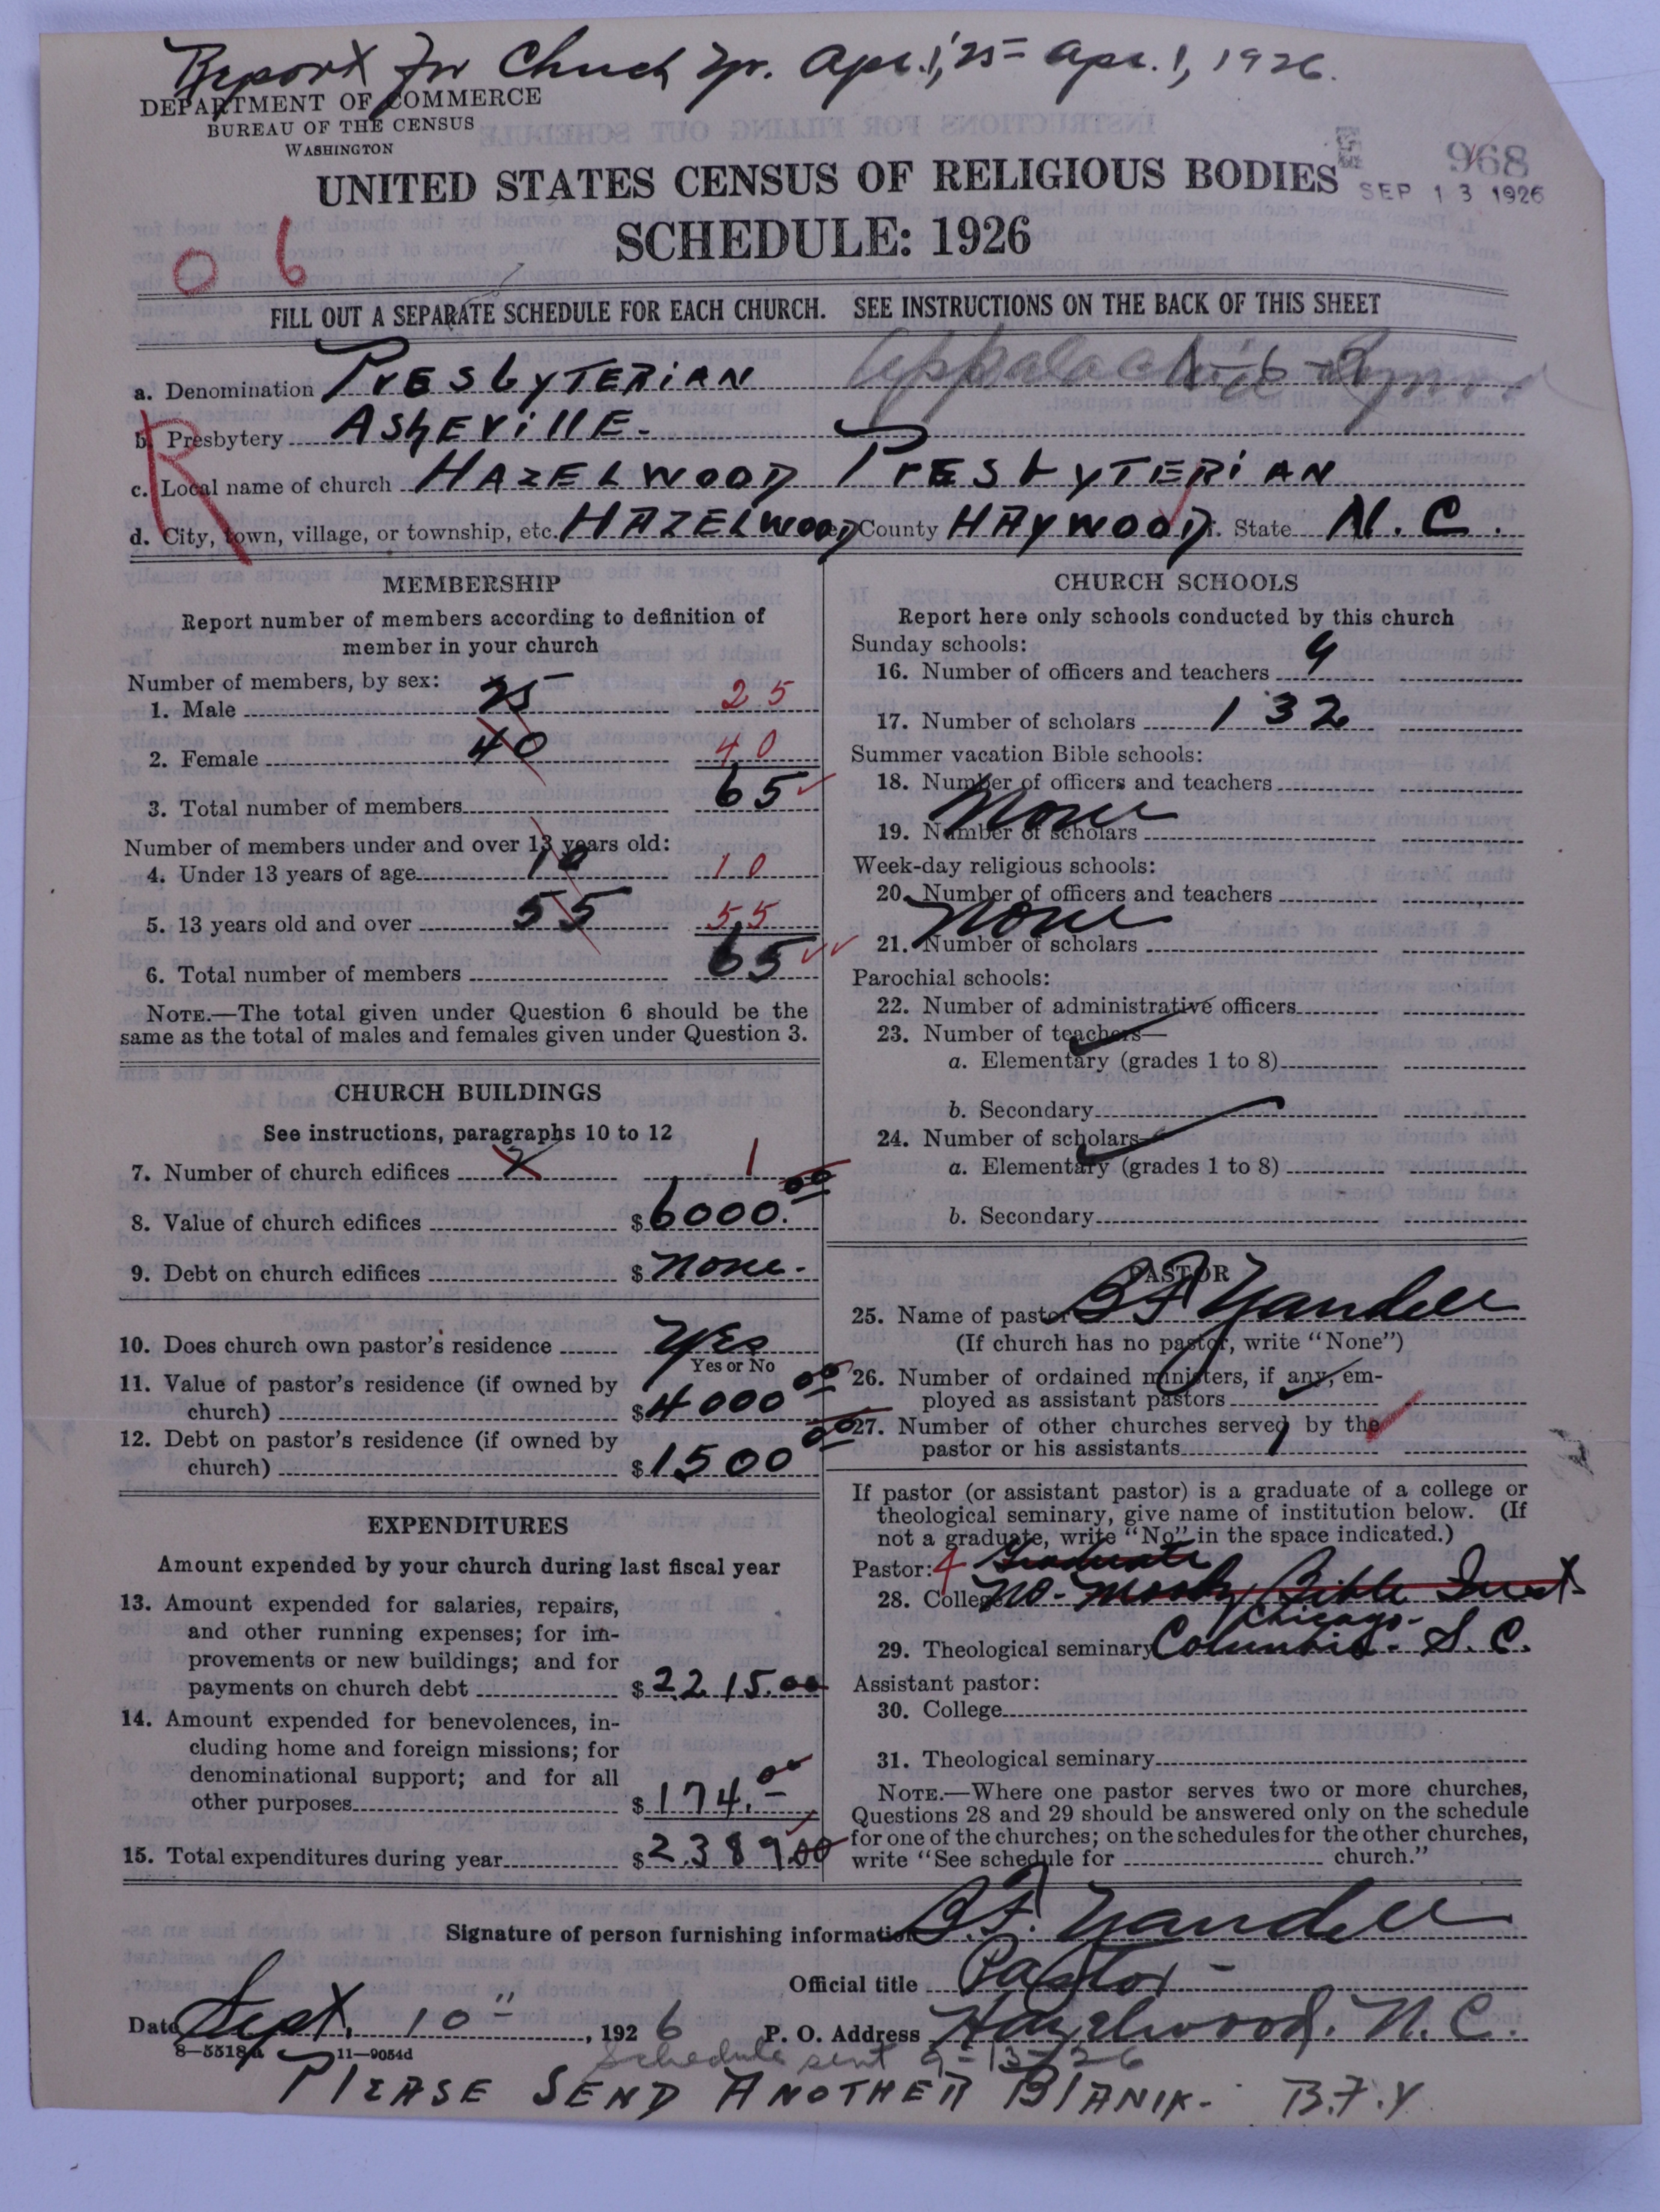 Report for Church Yr. Apr. 1, '25 = Apr. 1, 1926.
DEPARTMENT OF COMMERCE
BUREAU OF THE CENSUS
WASHINGTON
968
SEP 13 1926
UNITED STATES CENSUS OF RELIGIOUS BODIES
SCHEDULE: 1926
0 6
FILL OUT A SEPARATE SCHEDULE FOR EACH CHURCH. SEE INSTRUCTIONS ON THE BACK OF THIS SHEET
a. Denomination PRESbYTERiAN Appalachia 1-6-2
R
b. Presbytery AShEVillE-
c. Local name of church HAZELWOOD PRESbYTERiAN
d. City, town, village, or township, etc. HAZELWOOD County HAYWOOD State N. C.
MEMBERSHIP
Report number of members according to definition of
member in your church
Number of members, by sex:
1. Male 25 25
2. Female 40 40
3. Total number of members 65
Number of members under and over 13 years old:
4. Under 13 years of age 10 10
5. 13 years old and over 55 55
6. Total number of members 65
NOTE.—The total given under Question 6 should be the
same as the total of males and females given under Question 3.
CHURCH BUILDINGS
See instructions, paragraphs 10 to 12
7. Number of church edifices 1
8. Value of church edifices $6000.00
9. Debt on church edifices $ None.
10. Does church own pastor's residence Yes
Yes or No
11. Value of pastor's residence (if owned by
church) $4000 00
12. Debt on pastor's residence (if owned by
church) $1500 00
EXPENDITURES
Amount expended by your church during last fiscal year
13. Amount expended for salaries, repairs,
and other running expenses; for im-
provements or new buildings; and for
payments on church debt $2215.00
14. Amount expended for benevolences, in-
cluding home and foreign missions; for
denominational support; and for all
other purposes $174.00
15. Total expenditures during year $2389.00
CHURCH SCHOOLS
Report here only schools conducted by this church
Sunday schools:
16. Number of officers and teachers 9
17. Number of scholars 132
Summer vacation Bible schools:
18. Number of officers and teachers
None
19. Number of scholars
Week-day religious schools:
20. Number of officers and teachers
None
21. Number of scholars
Parochial schools:
22. Number of administrative officers
23. Number of teachers—
a. Elementary (grades 1 to 8)
b. Secondary
24. Number of scholars—
a. Elementary (grades 1 to 8)
b. Secondary
PASTOR
25. Name of pastor B F Yandell
(If church has no pastor, write "None")
26. Number of ordained ministers, if any, em-
ployed as assistant pastors
27. Number of other churches served by the
pastor or his assistants 1
If pastor (or assistant pastor) is a graduate of a college or
theological seminary, give name of institution below. (If
not a graduate, write "No" in the space indicated.)
Pastor: 4 Graduate
28. College No- Moody Bible Inst
Chicago-
29. Theological seminary Columbia- S. C.
Assistant pastor:
30. College
31. Theological seminary
NOTE.—Where one pastor serves two or more churches,
Questions 28 and 29 should be answered only on the schedule
for one of the churches; on the schedules for the other churches,
write "See schedule for church."
Signature of person furnishing information B.F. Yandell
Official title Pastor-
Date Sept. 10", 1926 P. O. Address Hazelwood. N. C.
8-5518a 11—9054d
Schedule sent 9-13-26
PlEASE SEND ANOTHER BlANK- B.F.Y